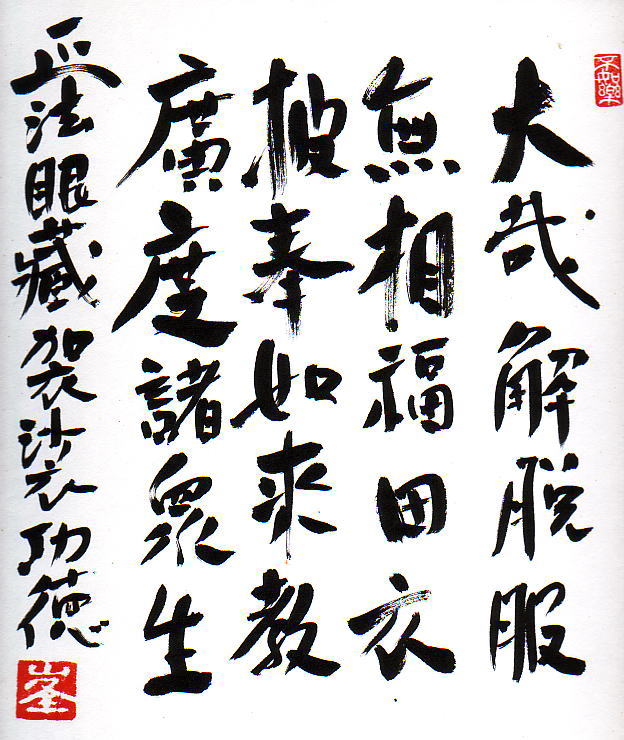 大哉解脱服
無相福田衣
披奉如來教
廣度諸眾生
正法眼藏袈裟功德
峯